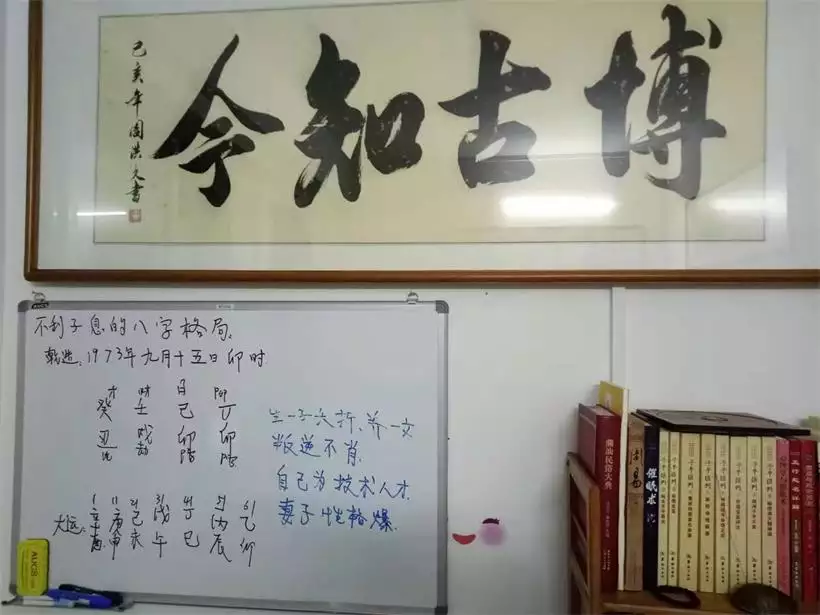 博古知今
己亥年周洪文書
不利子息的八字格局.
乾造:1973年九月十五日卯时
才 财 日
癸 壬 己 丁
丑 戌 卯 卯
比 劫
生一子夭折、养一女
叛逆不肖.
自己为技术人才.
妻子性格爆.
1 11 21 31 41 51 61
大运: 辛 庚 己 戊 丁 丙 乙
酉 申 未 午 巳 辰 卯
AUCS
潮汕民俗大典
周易
催眠术